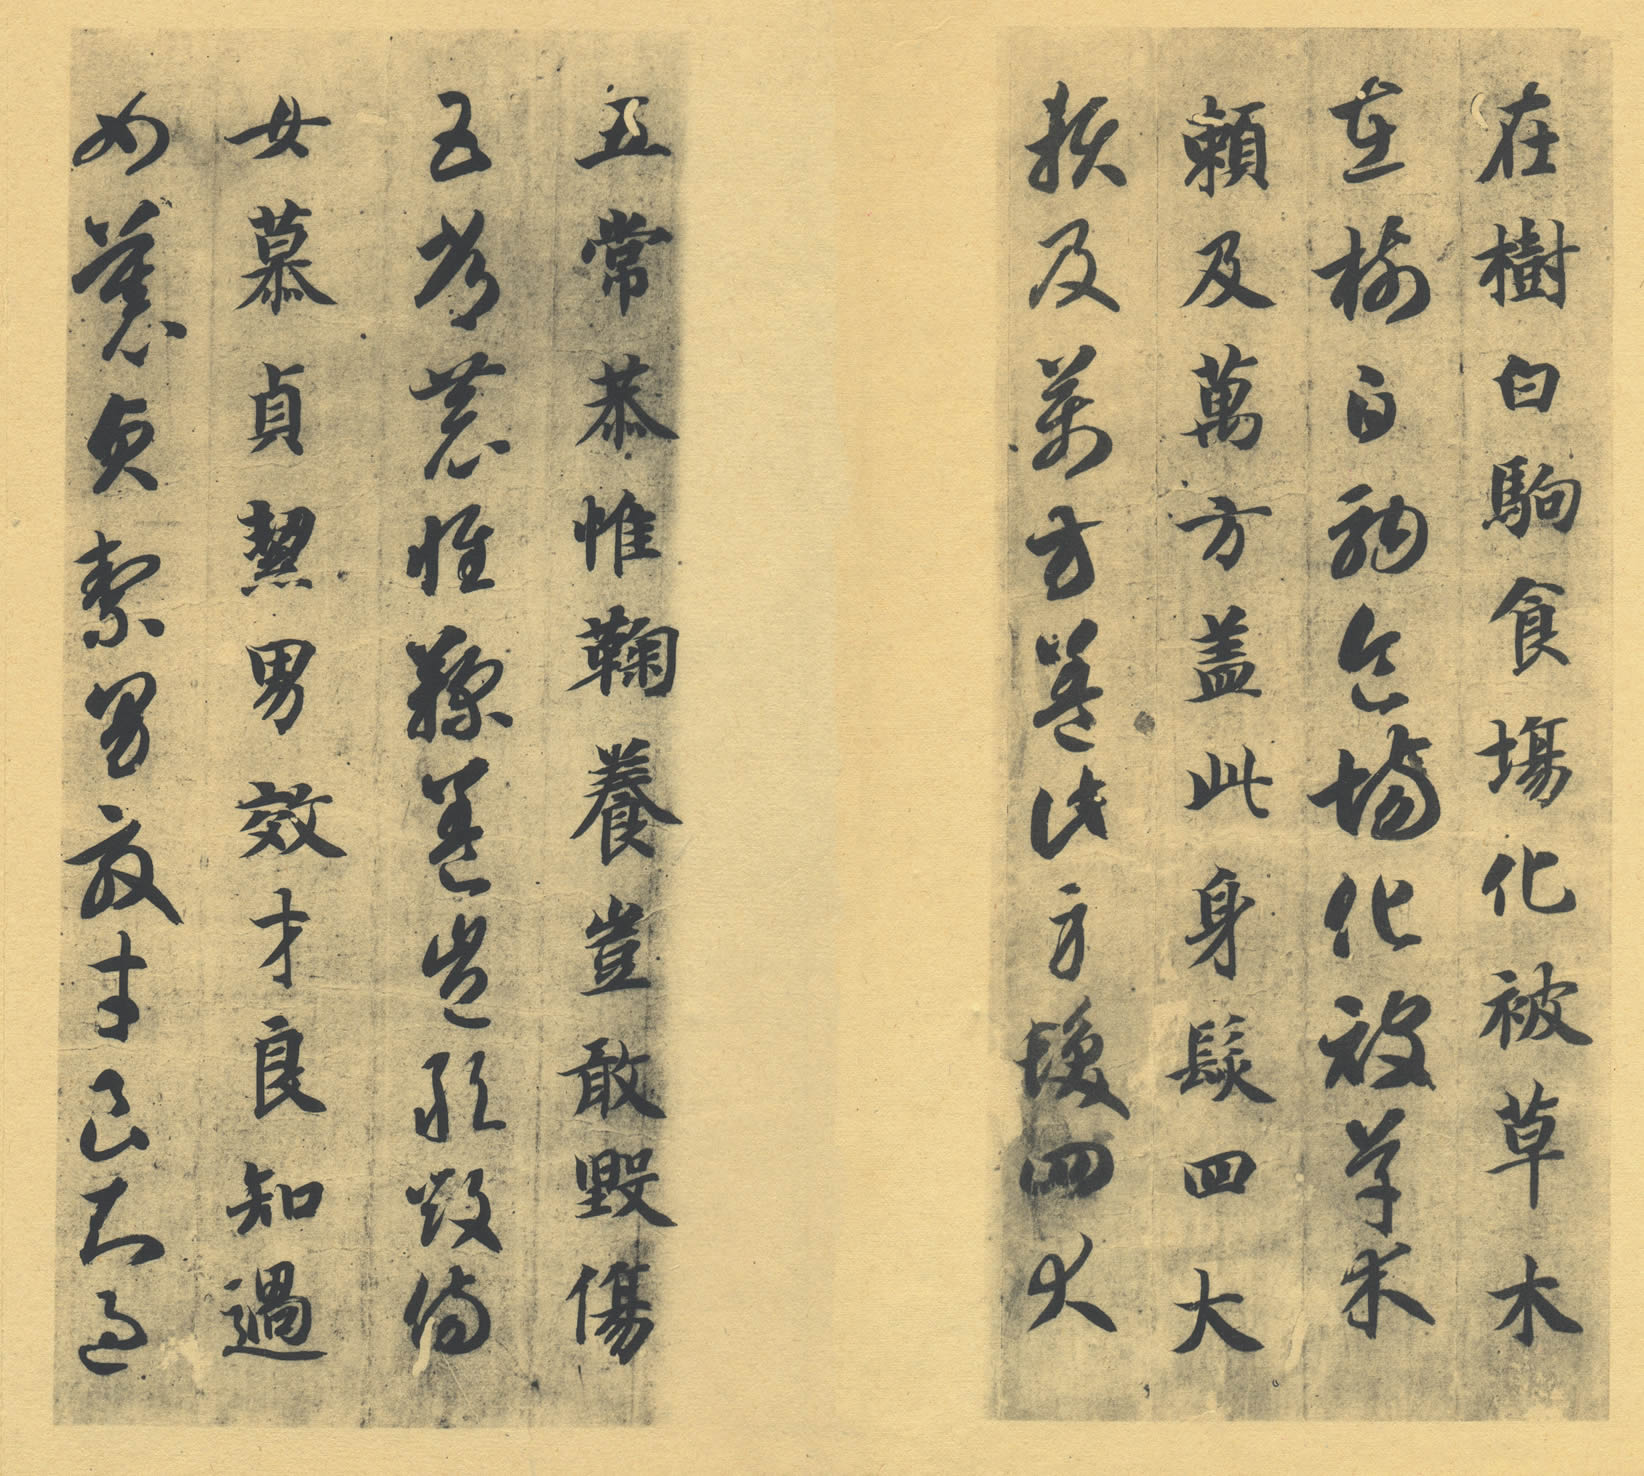 在樹白駒食塲化被草木
在樹白駒食場化被草木
賴及萬方盖此身髮四大
賴及萬方盖此身髮四大
五常恭惟鞠養豈敢毀傷
五常恭惟鞠養豈敢毀傷
女慕貞潔男效才良知過
女慕貞潔男效才良知過